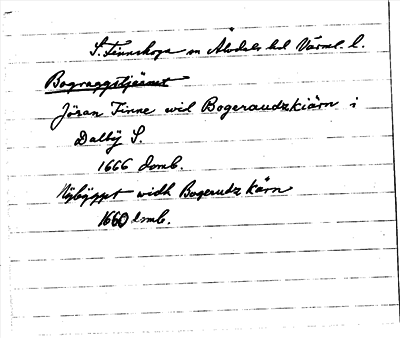 S. Finnskoga sn Älvdals hd Värml. l.
Bograngstjärnet
Jöran Finne wid Bogeraudzkiärn i
Dalby S.
1666 domb.
Nybÿggt widh Bogerudz kärn
1660 dmb.